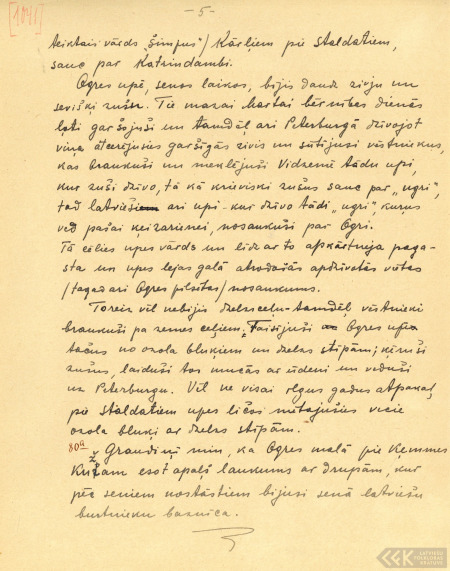 [1041]
- 5 -
teiktais vārds "Šimpus"/ Kārļiem pie Staldatiem,
sauc par Katrindambi.
Ogres upē, senos laikos, bijis daudz zivju un
sevišķi zušu. Tie mazai Martai bērnības dienās
ļoti garšojuši un tamdēļ arī Pēterburgā dzīvojot
viņa atcerējusies garšīgās zivis un sūtījusi vēstniekus,
kas braukuši un meklējuši Vidzemē tādu upi,
kur zuši dzīvo, tā kā krieviski zušus sauc par "ugri",
tad latvieši arī upi - kur dzīvo tādi "ugri", kurus
ved pašai ķeizarienei, nosaukuši par Ogri.
Tā cēlies upes vārds un līdz ar to apkārtnēja paga-
sta un upes lejas galā atrodošās apdzīvotās vietas
/tagad arī Ogres pilsētas/ nosaukums.
Toreiz vēl nebijis dzelzsceļu - tamdēļ vēstnieki
braukuši pa zemes ceļiem. Taisījuši Ogres upē
tačus no ozola blukiem un dzelzs stīpām; ķēruši
zušus, laiduši tos mucās ar ūdeni un veduši
uz Pēterburgu. Vēl ne visai ilgus gadus atpakaļ,
pie Staldatiem upes līcī mētājušies vecie
ozola bluķi ar dzelzs stīpām.
809 Ž. Graudiņš min, ka Ogres malā pie Ķemmes
Kužam esot apaļš laukums ar drupām, kur
pēc seniem nostāstiem bijusi senā latviešu
burtnieku baznīca.
LATVIEŠU
FOLKLORAS
KRĀTUVE